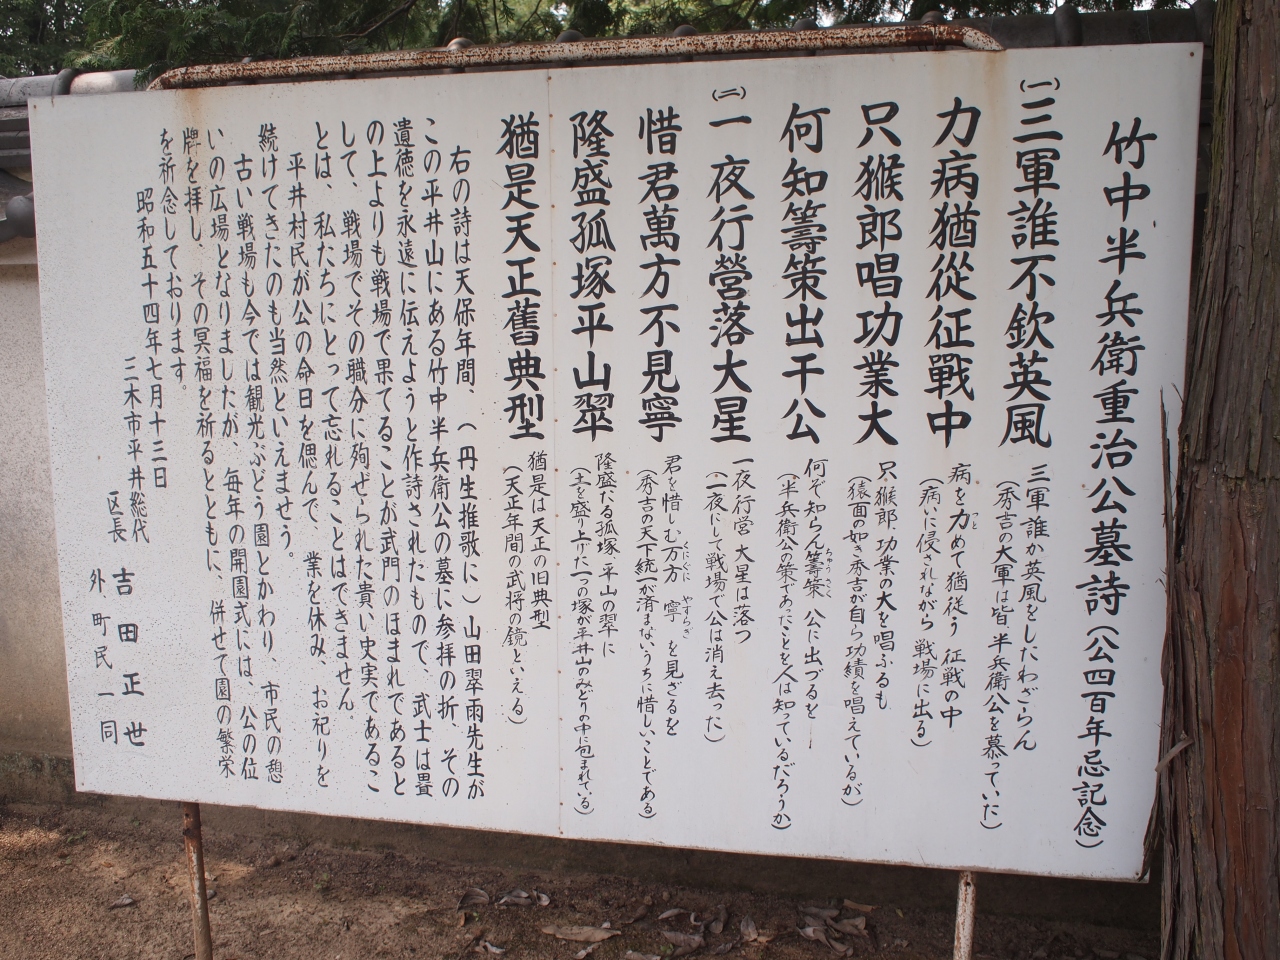 竹中半兵衛重治公墓詩(公四百年忌記念)
(一)三軍誰不欽英風
三軍誰か英風をしたわざらん
(秀吉の大軍は皆 半兵衛公を慕っていた)
力病猶從征戰中
病を力めて猶従う 征戦の中
つと
(病いに侵されながら 戦場に出る)
只猴郎唱功業大
只猴郎 功業の大を唱ふるも
(猿面の如き秀吉が自ら功績を唱えているが)
何知籌策出干公
何ぞ知らん籌策 公に出づるを
ちゅうさく
(半兵衛公の策であったことを人は知っているだろうか)
(二)一夜行營落大星
一夜行営 大星は落つ
(一夜にして戦場で公は消え去った)
惜君萬方不見寧
君を惜しむ万方 寧を見ざるを
くにぐに やすらぎ
(秀吉の天下統一が済まないうちに惜しいことである)
隆盛孤塚平山翠
隆盛たる孤塚 平山の翠に
(土を盛り上げた一つの塚が平井山のみどりの中に包まれている)
猶是天正舊典型
猶是は天正の旧典型
(天正年間の武将の鏡といえる)
右の詩は天保年間、(丹生椎歌に)山田翠雨先生が
この平井山にある竹中半兵衛公の墓に参拝の折、その
遺徳を永遠に伝えようと作詩されたもので、武士は畳
の上よりも戦場で果てることが武門のほまれであると
して、戦場でその職分に殉ぜられた貴い史実であるこ
とは、私たちにとって忘れることはできません。
平井村民が公の命日を偲んで、業を休み、お祀りを
続けてきたのも当然といえませう。
古い戦場も今では観光ぶどう園とかわり、市民の憩
いの広場となりましたが、毎年の開園式には、公の位
牌を拝し、その冥福を祈るとともに、併せて園の繁栄
を祈念しております。
昭和五十四年七月十三日
三木市平井総代
区長 吉田正世
外町民一同